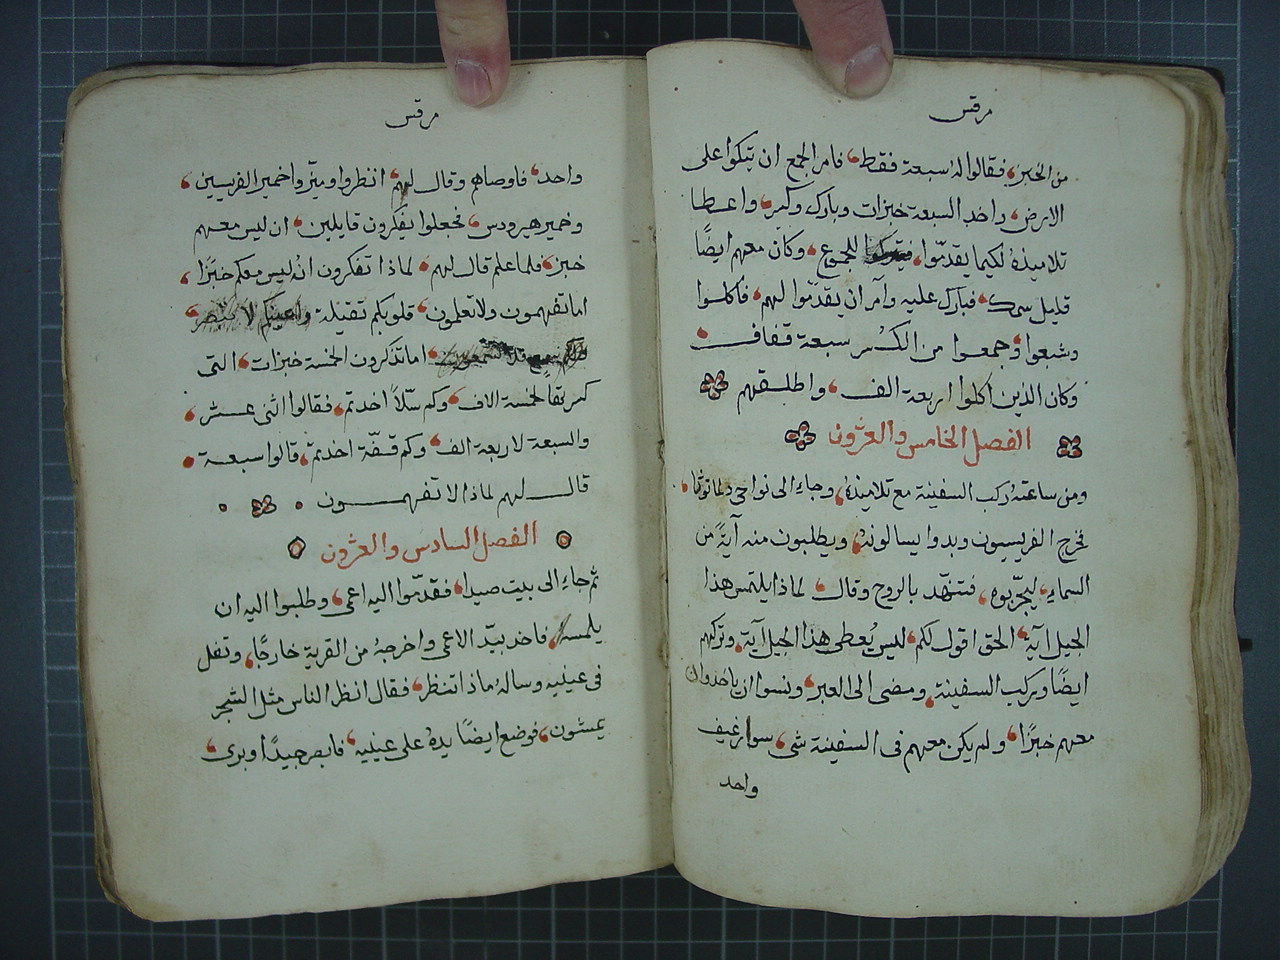 مرقس
من الخبز، فقالوا له سبعة فقط، فامر الجمع ان يتكوا على
الارض، واخد السبعة خبزات وبارك وكسر، واعطا
تلاميذه لكيما يقدموا، للجموع، وكان معهم ايضًا
قليل سمك، فبارك عليه وآمر ان يقدموا لهم، فأكلوا
وشبعوا، وجمعوا من الكسر سبعة قفاف
وكان الذين اكلوا اربعة الف، واطلقهم
الفصل الخامس والعشرون
ومن ساعته ركب السفينة مع تلاميذه، وجاء الى نواحي دلمانوثا،
فخرج الفريسيون وبدوا يسالونه، ويطلبون منه آيةً من
السماء، ليجربوه، فتنهّد بالروح وقال، لماذا يلتمس هذا
الجيل آية، الحق اقول لكم، ليس يُعطى هذا الجيل آية، وتركهم
ايضًا وركب السفينة، ومضى الى العبر، ونسوا ان ياخدوا
معهم خبزًا، ولم يكن معهم في السفينة شي، سوا رغيف
واحد
مرقس
واحد، فاوصاهم وقال لهم، انظروا وميّزوا خمير الفريسيين،
وخمير هيرودس، فجعلوا يفكرون قايلين، ان ليس معهم
خبز، فلما علم قال لهم، لماذا تفكرون انه ليس معكم خبزًا،
اما تفهمون ولا تعلمون، قلوبكم تقتيلة واعينكم لا تبصر،
اما تذكرون الخمسة خبزات، التى
كسرتها لخمسة الاف، وكم سلّاً اخدتم، فقالوا اثنى عشر،
والسبعة لاربعة الف، وكم قفّة اخدتم، قالوا سبعة،
قال لهم لماذا لا تفهمون
الفصل السادس والعشرون
ثم جاء الى بيت صيدا، فقدّموا اليه اعمى، وطلبوا اليه ان
يلمسه، فاخد بيدّ الاعمى واخرجه من القرية خارجًا، وتفل
في عينيه وساله ماذا تنظر، فقال انظر الناس مثل الشجر
يمشون، فوضع ايضًا يده على عينيه، فابصر جيدًا وبرى،